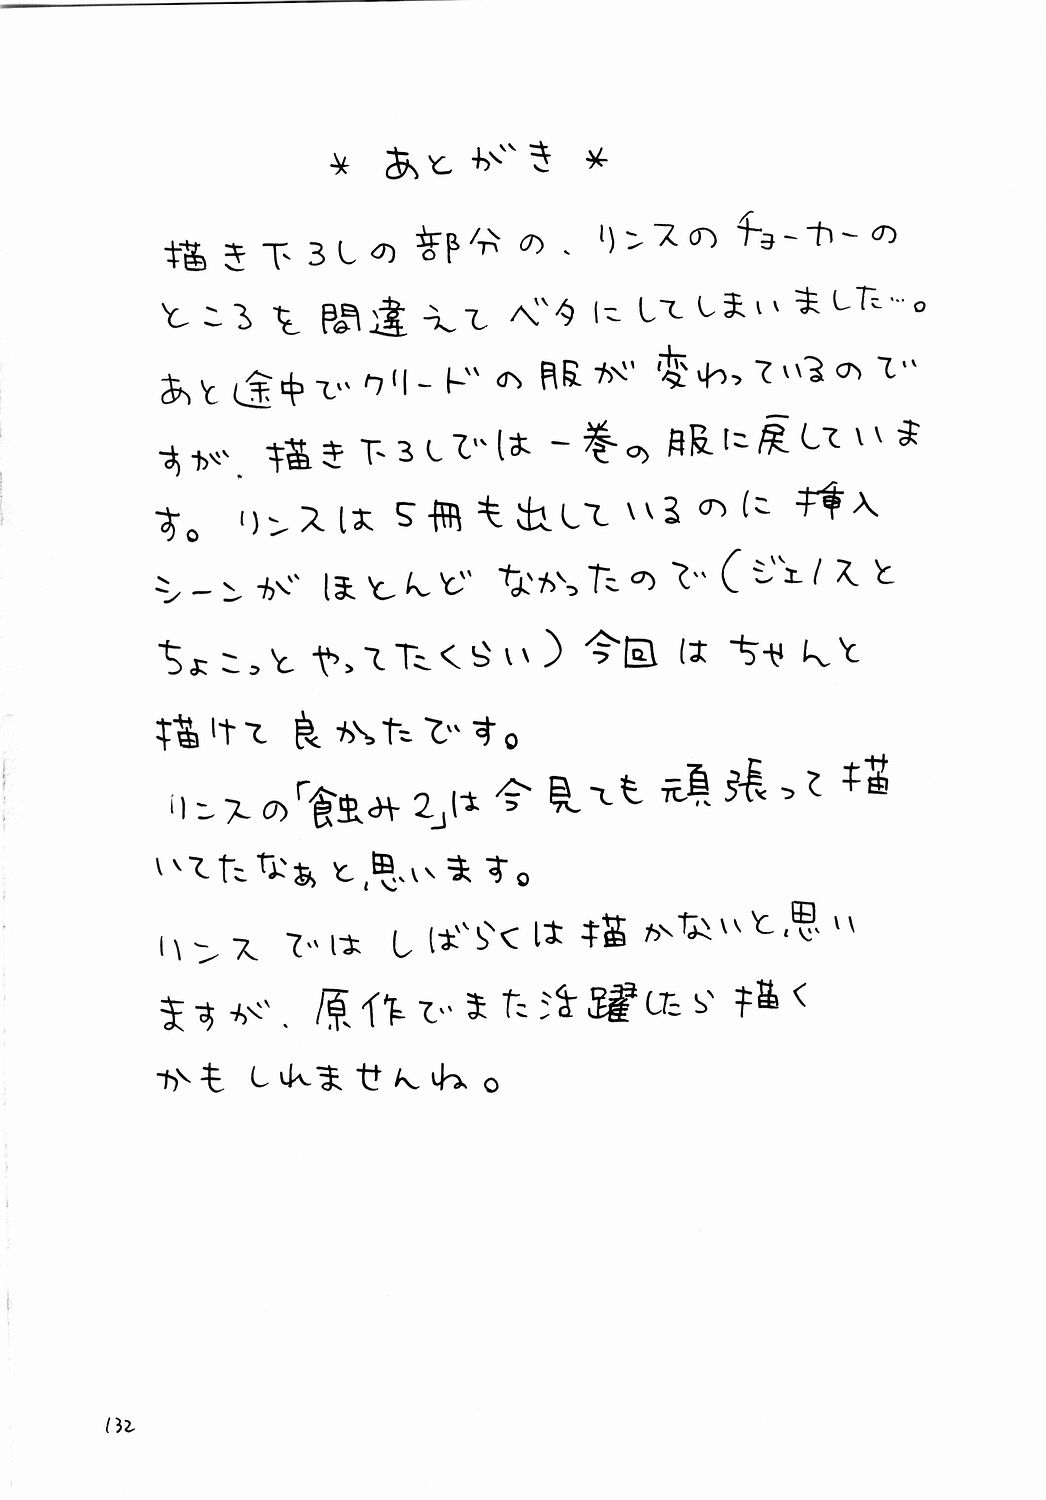 * あとがき *
描き下ろしの部分の、リンスのチョーカーの
ところを間違えてベタにしてしまいました…。
あと途中でクリードの服が変わっているので
すが、描き下ろしでは一巻の服に戻していま
す。リンスは5冊も出しているのに挿入
シーンがほとんどなかったので(ジェノスと
ちょこっとやってたくらい)今回はちゃんと
描けて良かったです。
リンスの「蝕み2」は今見ても頑張って描
いてたなぁと思います。
リンスではしばらくは描かないと思い
ますが、原作でまた活躍したら描く
かもしれませんね。
132